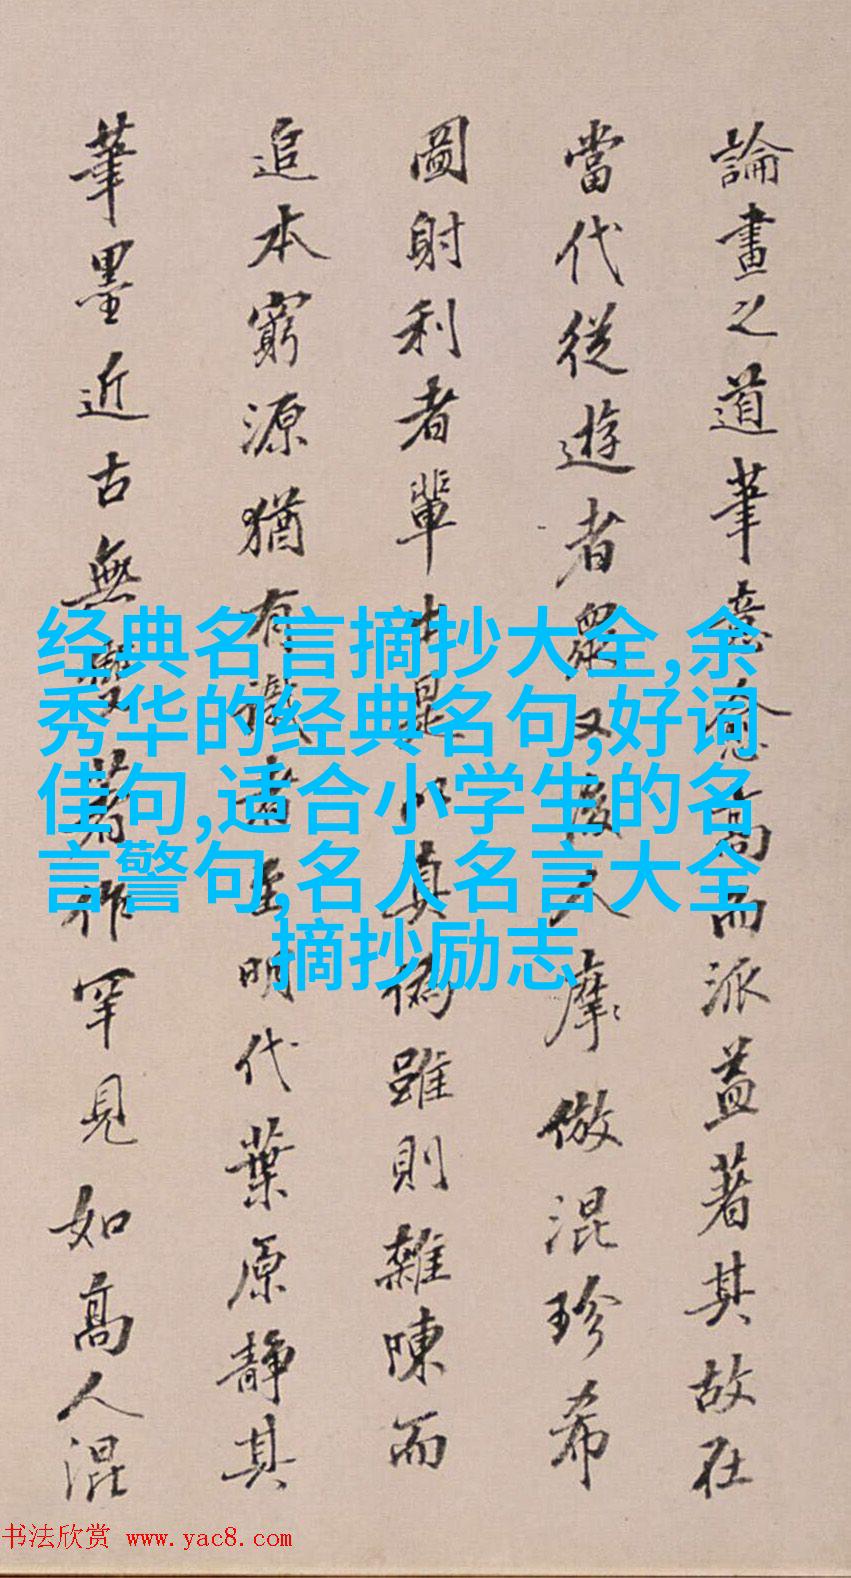 論畫之道筆意愈高而派益著其故在
當代從遊者眾又後人摩倣混珍希
圖射利者輩出是以真偽雖則雜陳而
追本窮源猶有識者至明代葉原靜其
筆墨近古無雙著作罕見如高人混
经典名言摘抄大全,余
秀华的经典名句,好词
佳句,适合小学生的名
言警句,名人名言大全
摘抄励志
书法欣赏 www.yac8.com